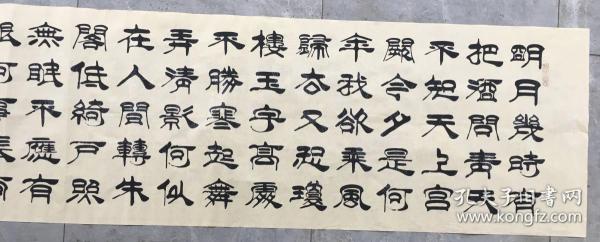 明月幾時有
把酒問青天
不知天上宮
闕今夕是何
年我欲乘風
歸去又恐瓊
樓玉宇高處
不勝寒起舞
弄清影何似
在人間轉朱
閣低綺戶照
無眠不應有
恨何事長向
孔夫子旧书网
www.kongfz.com